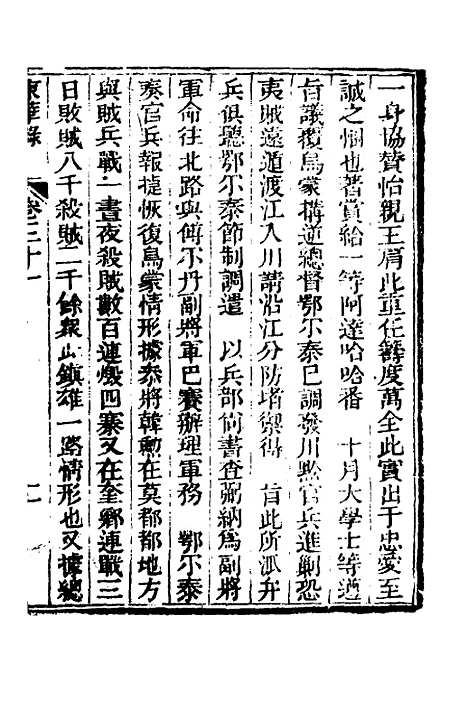 一身協贊怡親王肩此重任籌度萬全此實出于忠愛至
誠之悃也著賞給一等阿達哈哈番　十月大學士等遵
旨議覆烏蒙搆逆總督鄂尔泰已調發川黔官兵進剿恐
夷賊遠遁渡江入川請沿江分防堵禦得　旨此所派弁
兵俱聽鄂尔泰節制調遣　以兵部尙書查弼納爲副將
軍命往北路與傅尔丹副將軍巴賽辦理軍務　鄂尔泰
奏官兵報捷恢復烏蒙情形據叅將韓勳在莫都都地方
與賊兵戰一晝夜殺賊數百連燬四寨又在奎鄉連戰三
日敗賊八千殺賊二千餘衆此鎮雄一路情形也又據總
東華錄　卷三十一　二